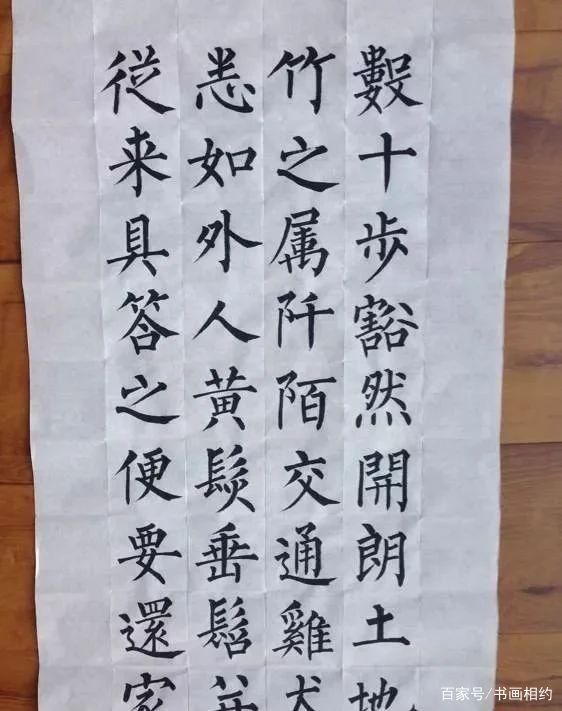 數十步豁然開朗土地
竹之属阡陌交通雞犬
悉如外人黄髮垂髫並
從来具答之便要還家
百家号/书画相约